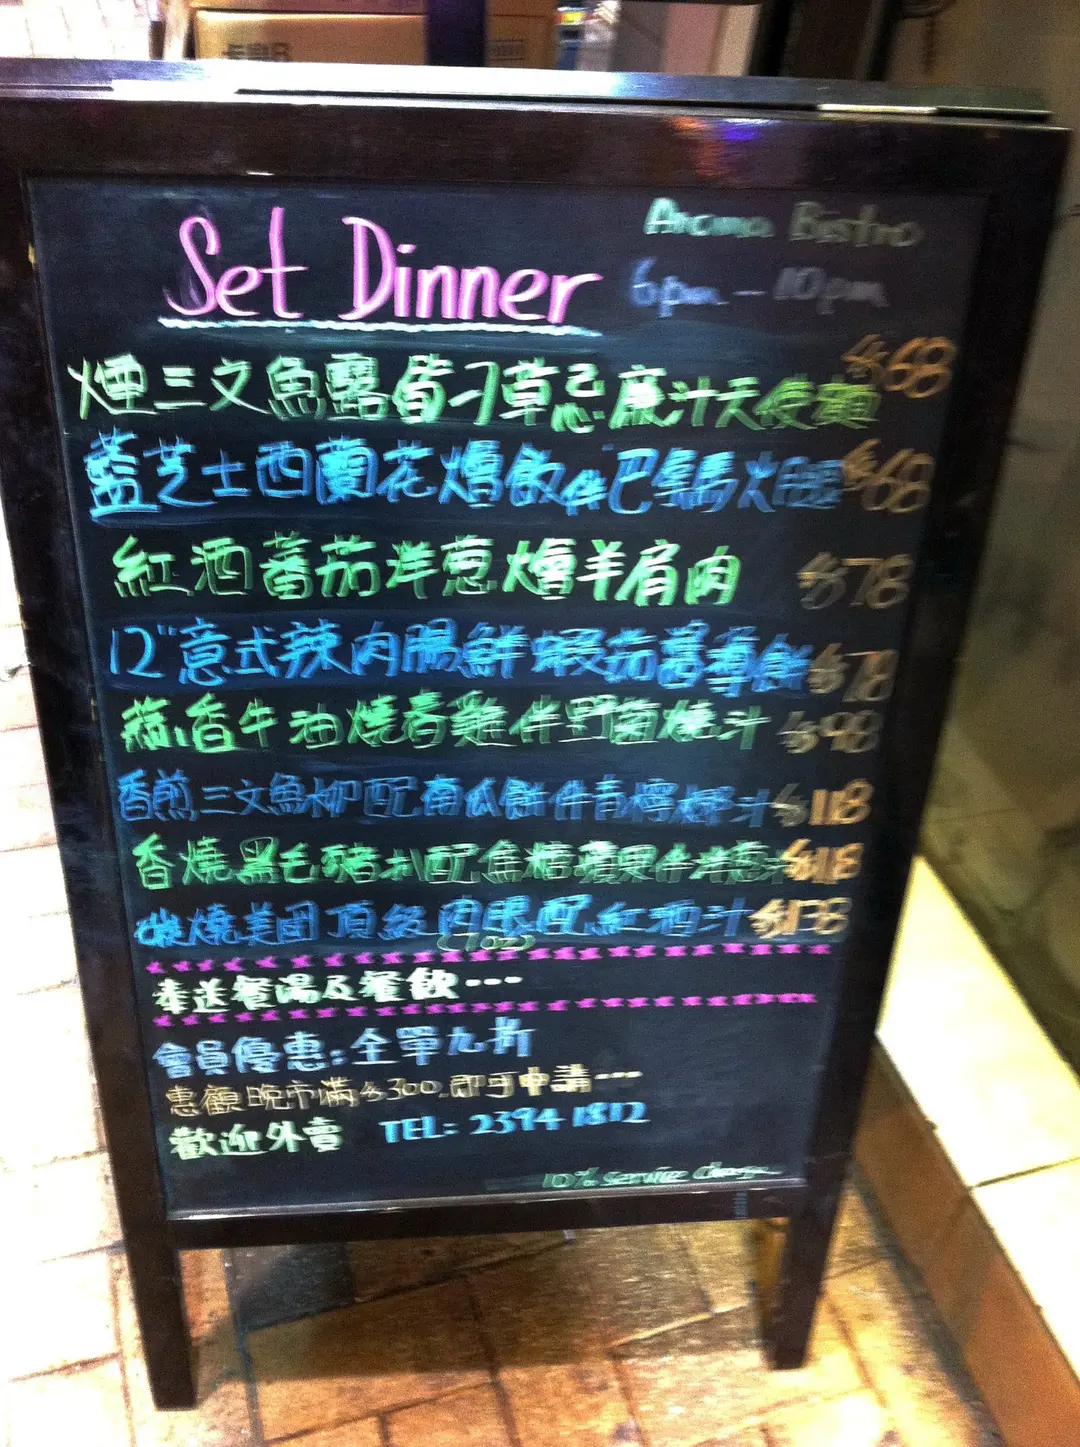 Set Dinner
Aroma Bistro
6pm - 10pm
煙三文魚露筍刁草忌廉汁天使麵 $68
藍芝士西蘭花燴飯伴巴馬火腿 $68
紅酒蕃茄洋葱燴羊肩肉 $78
12"意式辣肉腸鮮蝦茄蕃薄餅 $78
蒜香牛油燒春雞伴野菌燒汁 $98
香煎三文魚柳配南瓜餅伴青檸汁 $118
香燒黑毛豬扒配焦糖蘋果伴洋葱汁 $118
炭燒美国頂級肉眼配紅酒汁 $138
(10oz)
奉送餐湯及餐飲...
會員優惠:全單九折
惠顧晚市滿$300,即可申請...
歡迎外賣 TEL: 2394 1812
10% service charge